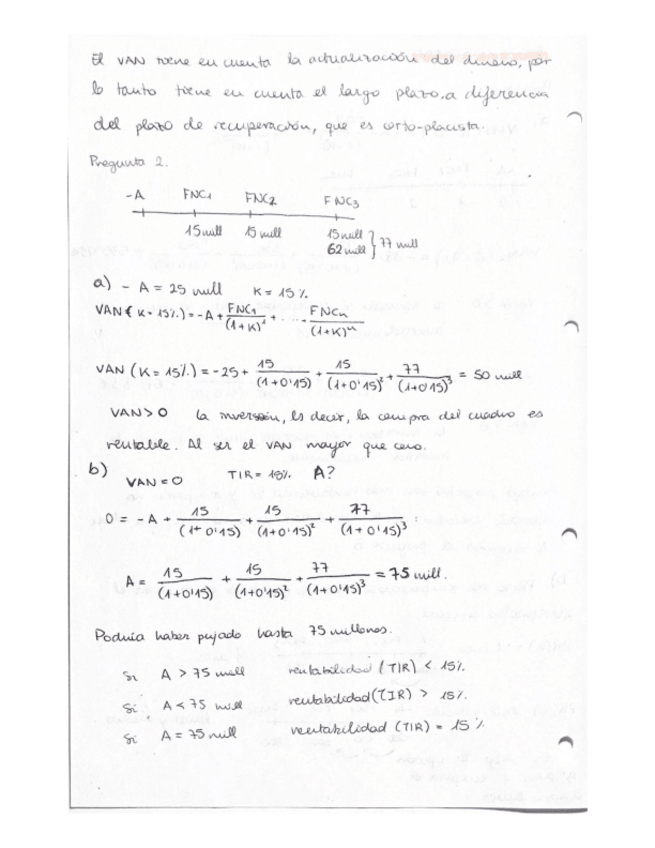 El VAN tiene en cuenta la actualización del dinero, por
lo tanto tiene en cuenta el largo plazo, a diferencia
del plazo de recuperación, que es corto-placista.
Pregunta 2.
-A FNC1 FNC2 FNC3
15 mill 15 mill 15 mill
62 mill } 77 mill
a) - A = 25 mill K = 15 %
VAN ( K = 15%) = -A + FNC1/(1+K)^1 + .... FNCn/(1+K)^n
VAN (K = 15%) = -25 + 15/(1+0'15) + 15/(1+0'15)^2 + 77/(1+0'15)^3 = 50 mill
VAN > 0 la inversión, es decir, la compra del cuadro es
rentable. Al ser el VAN mayor que cero.
b) VAN = 0 TIR = 15% A?
0 = -A + 15/(1+0'15) + 15/(1+0'15)^2 + 77/(1+0'15)^3
A = 15/(1+0'15) + 15/(1+0'15)^2 + 77/(1+0'15)^3 = 75 mill.
Podría haber pujado hasta 75 millones.
Si A > 75 mill rentabilidad (TIR) < 15%
Si A < 75 mill rentabilidad (TIR) > 15%
Si A = 75 mill rentabilidad (TIR) = 15%